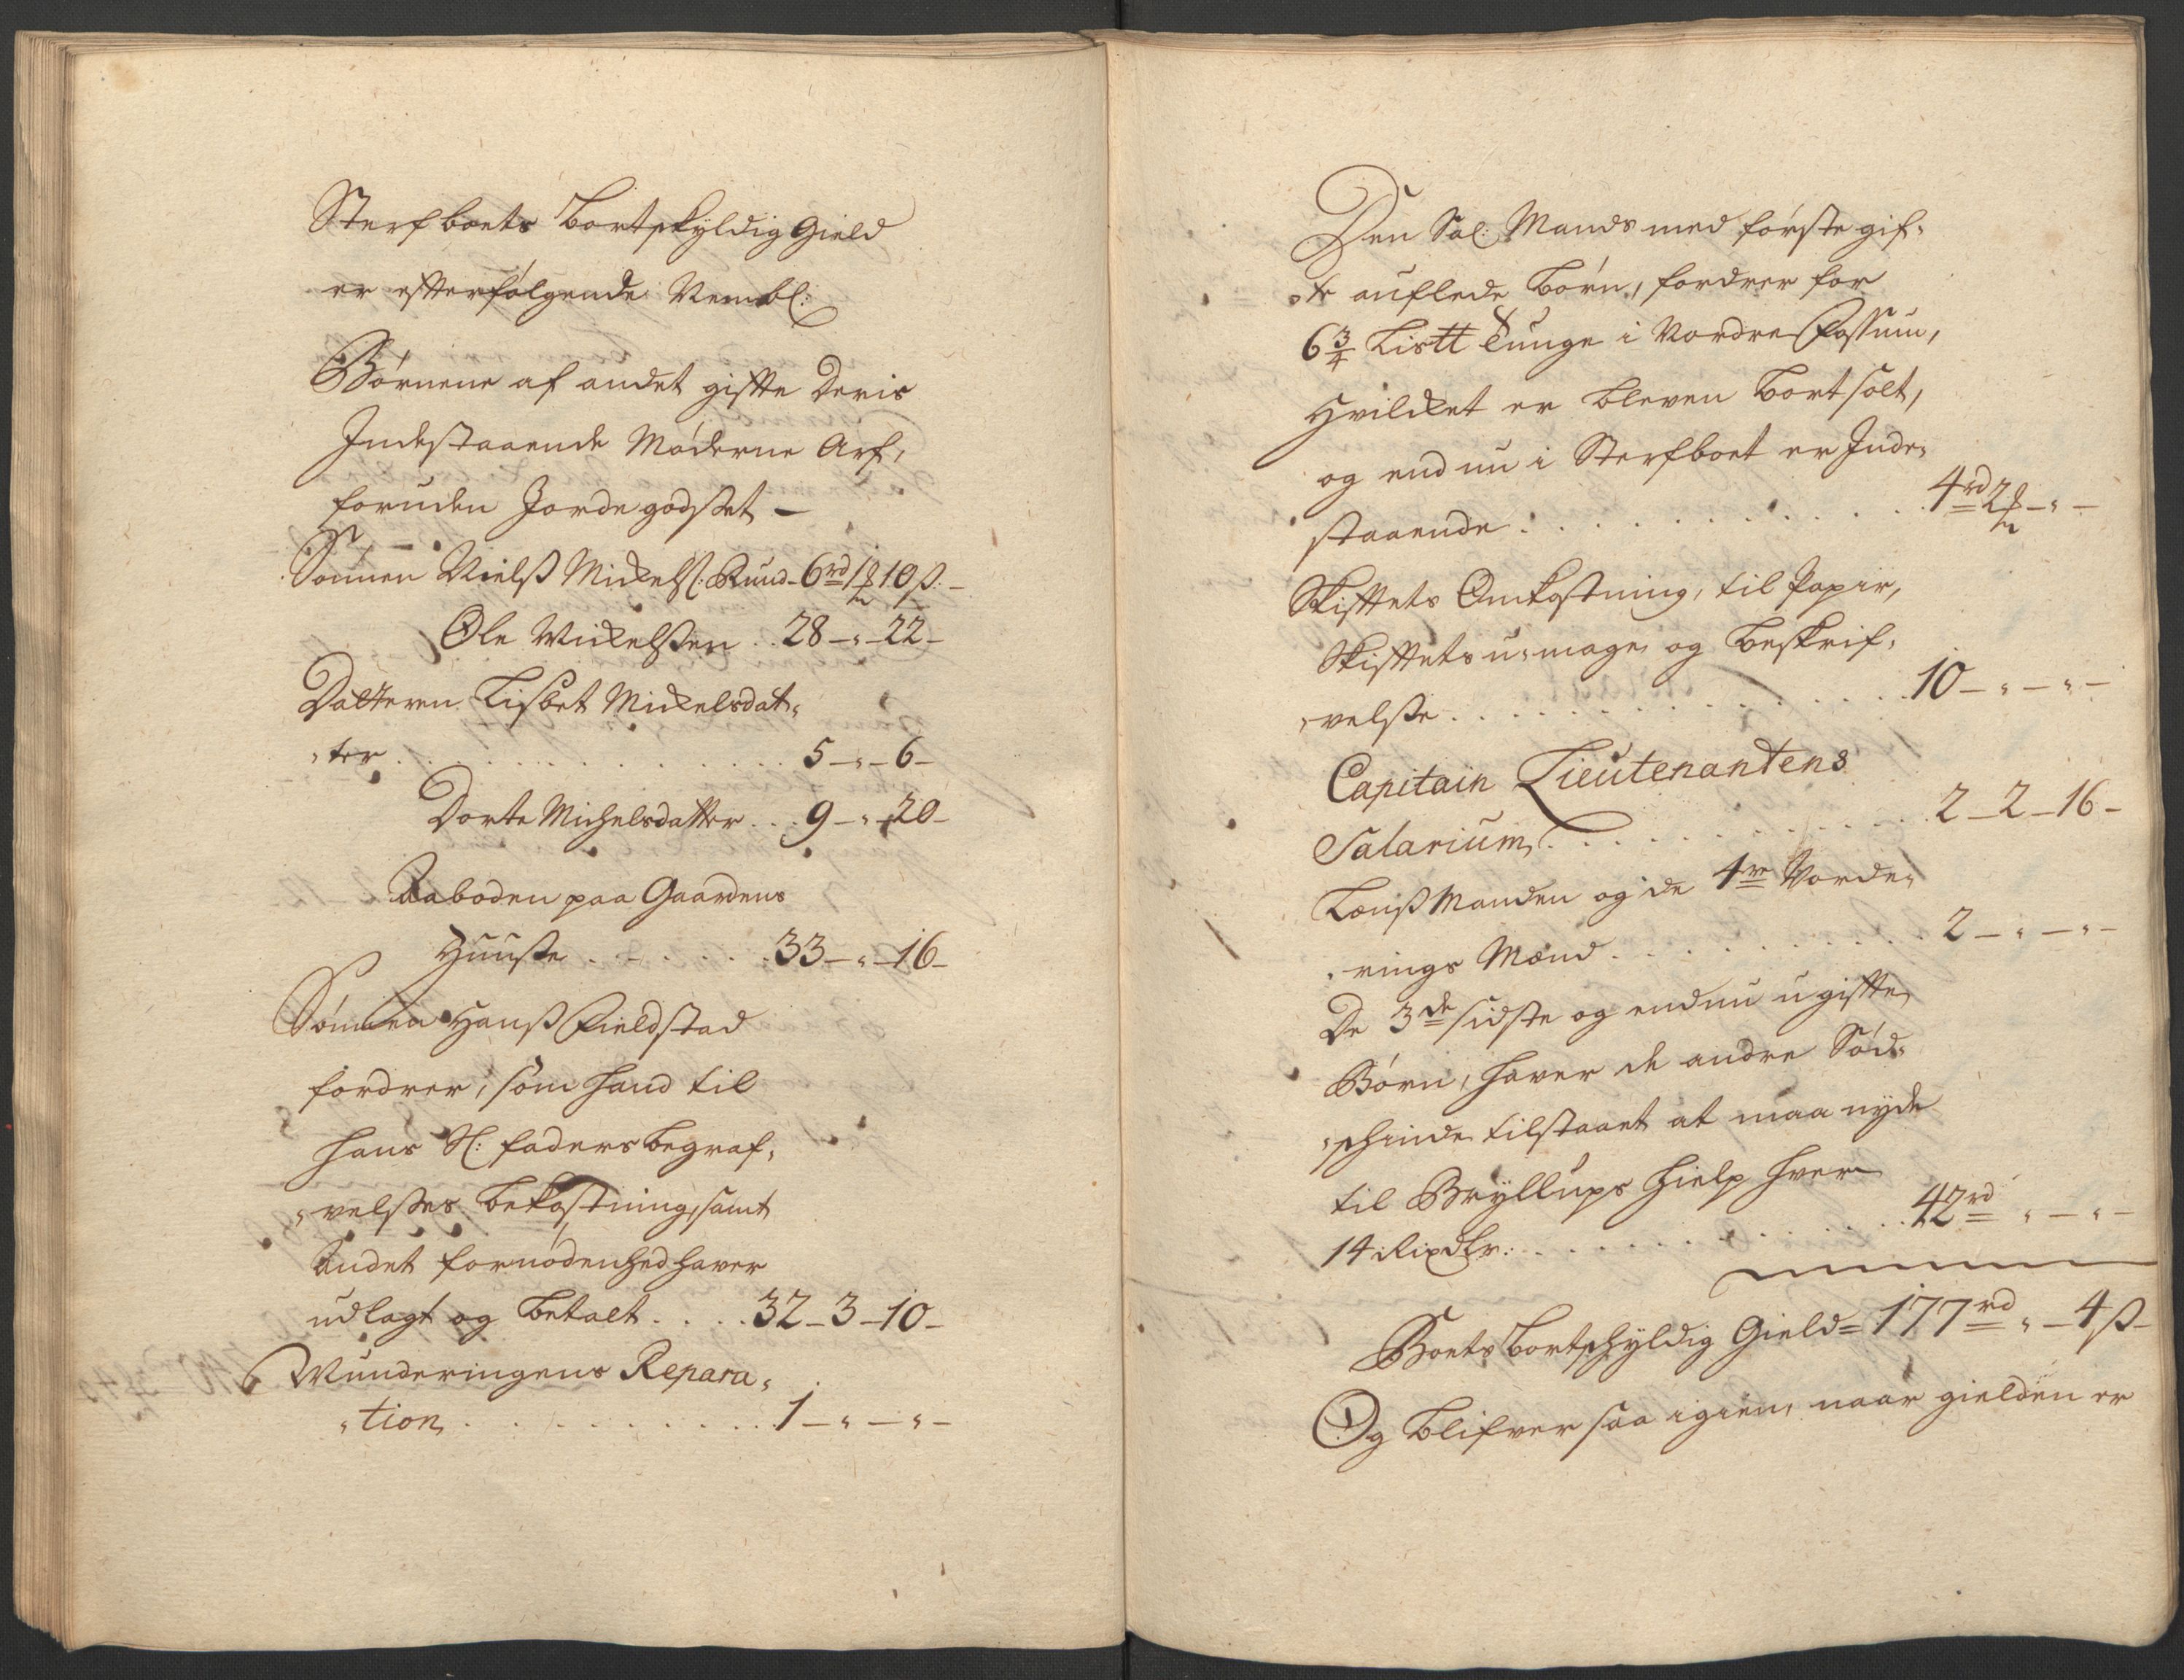 Sterfboets bortskyldig Gield
er effterfølgende Nembl:
Børnene af andet gifte Deris
Indestaaende Møderne Arf,
foruden Jordegodset –
Sønnen Nielß Mickelß: Ruud - 6 rd 1 ort 10 ß. –
Ole Mickelßen . . 28 – „ – 22 –
Datteren Lisbet Mickelsdat„
„ter . . . . . . . . . . . 5 – „ – 6 –
Dorte Michelsdatter . . . 9 – „ – 20 –
Aaboden paa Gaardens
Huuse . . . . . . . 33 – „ – 16 –
Sønnen Hanß Fieldstad
fordrer, som hand til
hans Sl: faders begraf„
„velses bekostning, samt
Andet fornødenhed haver
udlagt og betalt . . . . 32 – 3 – 10 –
Munderingens Repara„
„tion, . . . . . . . . . . 1 – „ – „ –
Den Sal: Mands med første gif„
„te auflede børn, fordrer for
6 3/4 Lis℔ Tunge i Nordre Fossum,
Hvilcket er bleven bortsolt,
og end nu i Sterfboet er Inde„
staaende . . . . . . . . . . . . 4 rd 2 ort – „ –
Skifftets Omkostning, til Papir,
Skifftets u-mage, og beskrif„
„velse . . . . . . . . . . . . . 10 – „ – „ –
Capitain Lieutenantens
Salarium, . . . . . . . . . . . 2 – 2 – 16 –
Lænß Manden og de 4re Vorde„
„rings Mænd . . . . . . . . . . 2 – „ – „ –
De 3de sidste og endnu ugiffte
Børn, haver de andre Sød„
„schinde tilstaaet at maa nyde
til Bryllups hielp hver
14 Rixdlr: . . . . . . . . . . . 42 rd „ – „ –
Boets bortschyldig Gield = 177 rd „ – 4 ß –
Og blifver saa igien, naar gielden er